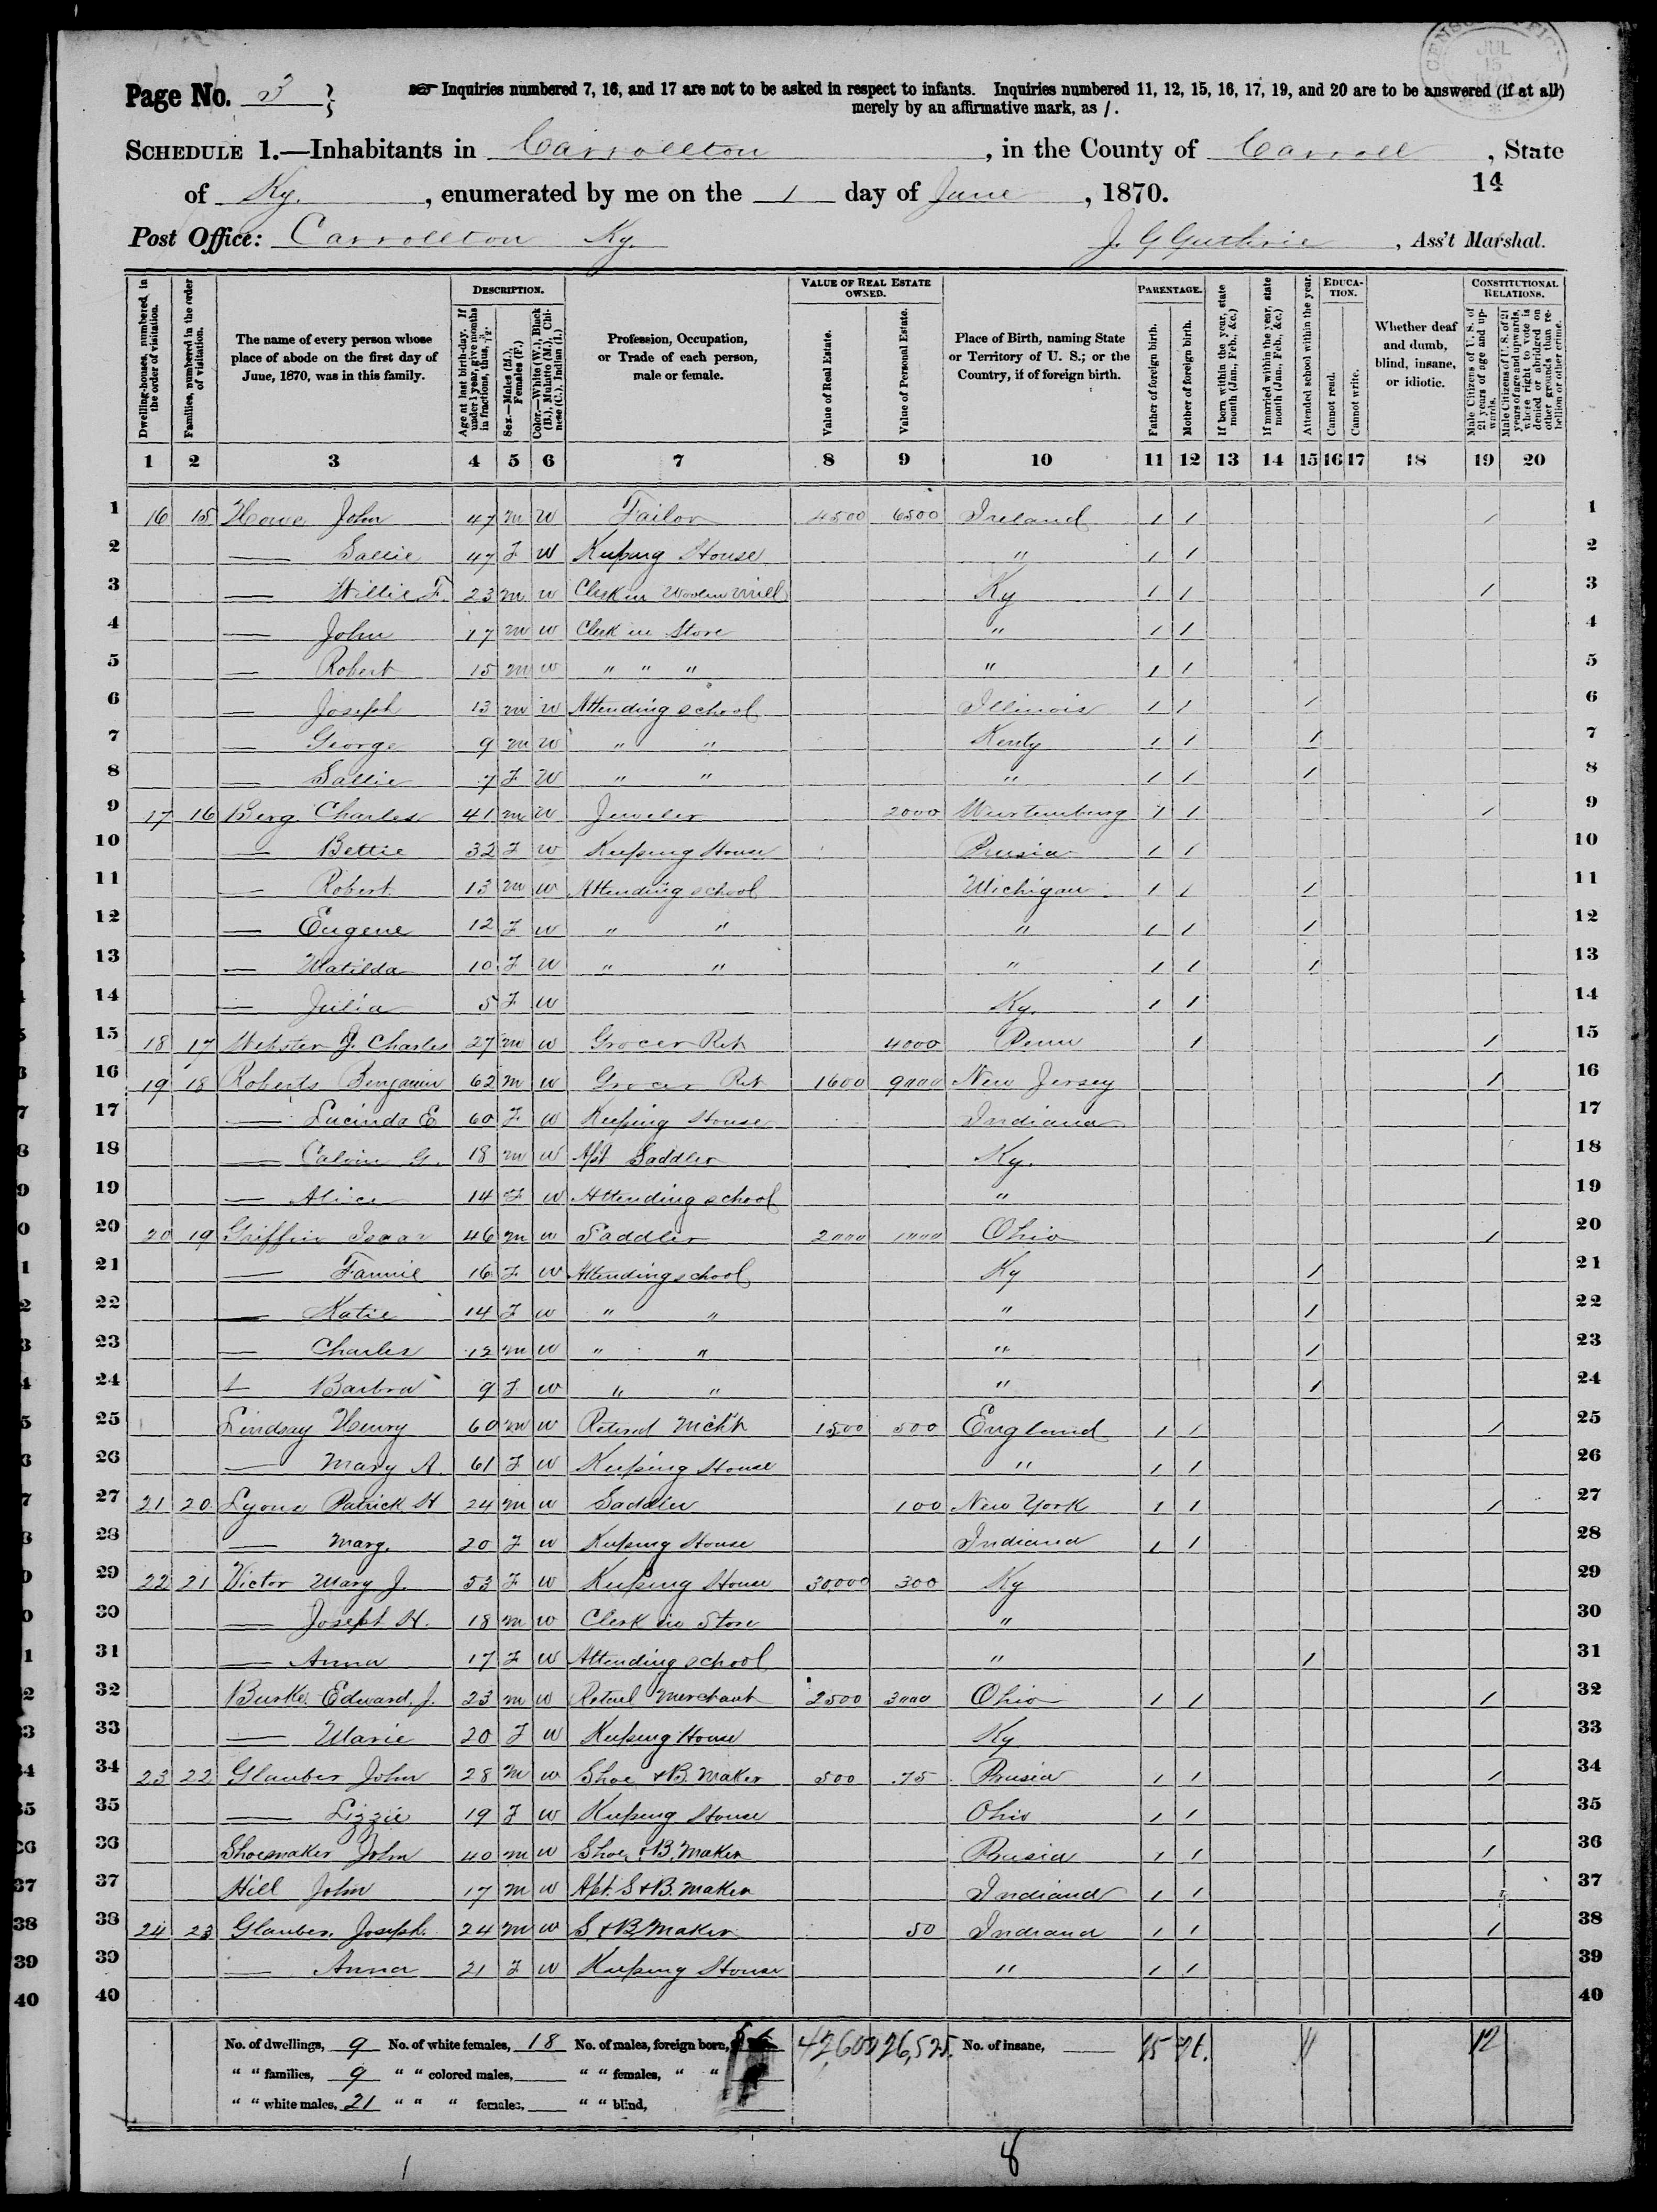 CENSUS OFFICE JUL 15
Page No. 3
Inquiries numbered 7, 16, and 17 are not to be asked in respect to infants. Inquiries numbered 11, 12, 15, 16, 17, 19, and 20 are to be answered (if at all)
merely by an affirmative mark, as /.
SCHEDULE 1.—Inhabitants in Carrollton, in the County of Carroll, State
of Ky., enumerated by me on the 1 day of June, 1870.
14
Post Office: Carrollton Ky. J. G Guthrie, Ass't Marshal.
Dwelling-houses, numbered, in the order of visitation.
Families, numbered in the order of visitation.
The name of every person whose place of abode on the first day of June, 1870, was in this family.
DESCRIPTION.
Age at last birth-day. If under 1 year, give months in fractions, thus, 3/12.
Sex.—Males (M.), Females (F.)
Color.—White (W.), Black (B.), Mulatto (M.), Chinese (C.), Indian (I.)
Profession, Occupation, or Trade of each person, male or female.
VALUE OF REAL ESTATE OWNED.
Value of Real Estate.
Value of Personal Estate.
Place of Birth, naming State or Territory of U. S.; or the Country, if of foreign birth.
PARENTAGE.
Father of foreign birth.
Mother of foreign birth.
If born within the year, state month (Jan., Feb., &c.)
If married within the year, state month (Jan., Feb., &c.)
Attended school within the year.
EDUCATION.
Cannot read.
Cannot write.
Whether deaf and dumb, blind, insane, or idiotic.
CONSTITUTIONAL RELATIONS.
Male Citizens of U. S. of 21 years of age and upwards.
Male Citizens of U. S. of 21 years of age and upwards, where right to vote is denied or abridged on other grounds than rebellion or other crime.
1 2 3 4 5 6 7 8 9 10 11 12 13 14 15 16 17 18 19 20
1 16 15 Howe John 47 m W Tailor 4500 6500 Ireland / / / 1
2 — Sallie 47 F W Keeping House " / / 2
3 — Willie F. 23 m W Clerk in Woolen Mill Ky / / / 3
4 — John 17 m W Clerk in Store " / / 4
5 — Robert 15 m W " " " " / / 5
6 — Joseph 13 m W Attending school Illinois / / / 6
7 — George 9 m W " " Kenty / / / 7
8 — Sallie 7 F W " " " / / / 8
9 17 16 Berg Charles 41 m W Jeweler 2000 Wurtemburg / / / 9
10 — Bettie 32 F W Keeping House Prusia / / 10
11 — Robert 13 m W Attending school Michigan / / / 11
12 — Eugene 12 F W " " " / / / 12
13 — Matilda 10 F W " " " / / / 13
14 — Julia 5 F W Ky. / / 14
15 18 17 Webster J. Charles 27 m W Grocer Ret 4000 Penn / / 15
16 19 18 Roberts Benjamin 62 m W Grocer Ret 1600 9000 New Jersey / 16
17 — Lucinda E 60 F W Keeping House Indiana 17
18 — Calvin G. 18 m W Apt Saddler Ky. 18
19 — Alice 14 F W Attending school " 19
20 20 19 Griffin Isaac 46 m W Saddler 2000 1000 Ohio / 20
21 — Fannie 16 F W Attending school Ky / 21
22 — Katie 14 F W " " " / 22
23 — Charles 12 m W " " " / 23
24 — Barbra 9 F W " " " / 24
25 Lindsay Henry 60 m W Retired Mcht 1500 500 England / / / 25
26 — Mary A. 61 F W Keeping House " / / 26
27 21 20 Lyons Patrick H 24 m W Saddler 100 New York / / / 27
28 — Mary. 20 F W Keeping House Indiana / / 28
29 22 21 Victor Mary J. 53 F W Keeping House 30,000 300 Ky 29
30 — Joseph H. 18 m W Clerk in Store " 30
31 — Anna 17 F W Attending school " / 31
32 Burke Edward. J. 23 m W Retail Merchant 2500 3000 Ohio / / / 32
33 — Marie 20 F W Keeping House Ky 33
34 23 22 Glauber John 28 m W Shoe & B. Maker 500 75 Prusia / / / 34
35 — Lizzie 19 F W Keeping House Ohio / / 35
36 Shoemaker John 40 m W Shoe & B. Maker Prusia / / / 36
37 Hill John 17 m W Apt. S & B. Maker Indiana / / 37
38 24 23 Glauber. Joseph. 24 m W S. & B. Maker 50 Indiana / / / 38
39 — Anna 21 F W Keeping House " / / 39
40 40
No. of dwellings, 9 No. of white females, 18 No. of males, foreign born, 42,600 26,525. No. of insane, 11 12
" " families, 9 " " colored males, " " females, " "
" " white males, 21 " " " females, " " blind,
8